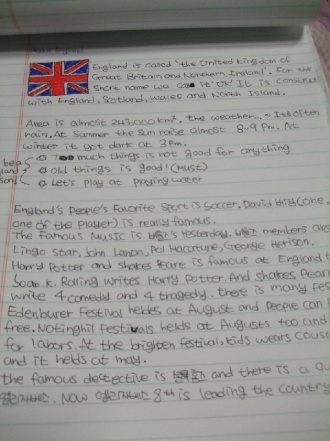 England is called 'the United Kingdom of
Great Britain and Northern Ireland'. For the
Shore name we it 'UK' It is consines
with England, Scotland, wales and North Island.
Area is almost 243,000km². the weather... Its often
rain. At Summer the Sun raise almost 8-9 Pm. At
winter it get dark at 3pm.
Too much things is not good for anything
old things is good! (Must)
Let's Play at Playing water
England's People's Favorite Sport is Soccer. David (one,
one of the Player) is really famous.
The famous Music is Yesterday. members are
Lingo star, John Lanon, Pol Macature, George Herison.
Harry Potter and shakes Peare is famous at England t
Soan. K. Rolling writes Harry Potter. And shakes Pear
write 4 comedy and 4 tragedy. there is many Fes
Edenburer Festival heldes at August and People can
free. Notinghil Festivals helds at Augusts too and
for labors. At the brighten festival, kids wears
and it helds at may.
the famous detective is and there is a
Now 8th is leading the country